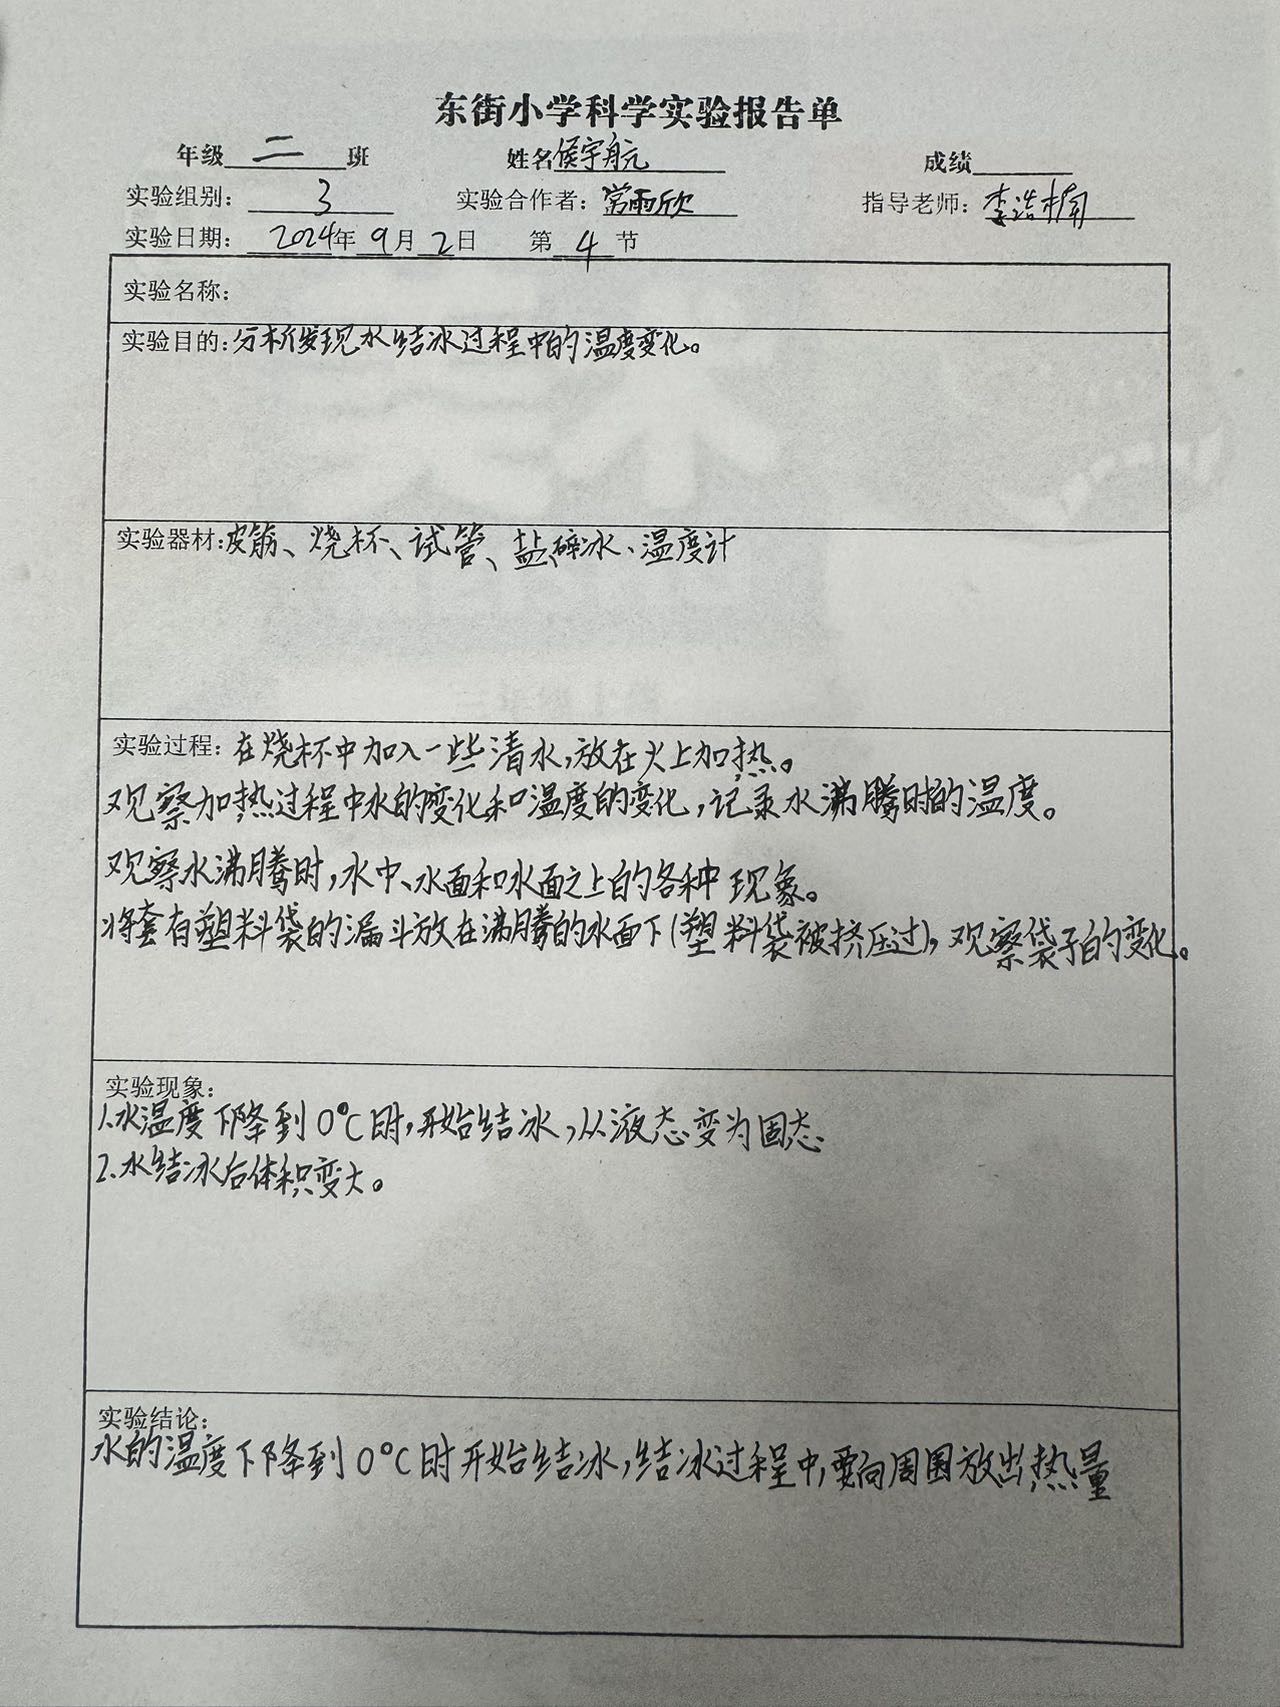 东街小学科学实验报告单
年级 二 班 姓名 侯宇航 成绩
实验组别： 3 实验合作者：常雨欣 指导老师：李浩楠
实验日期： 2024年 9月 2日 第 4 节
实验名称：
实验目的：分析发现水结冰过程中的温度变化。
实验器材：皮筋、烧杯、试管、盐、碎冰、温度计
实验过程：在烧杯中加入一些清水，放在火上加热。
观察加热过程中水的变化和温度的变化，记录水沸腾时的温度。
观察水沸腾时，水中、水面和水面之上的各种现象。
将套有塑料袋的漏斗放在沸腾的水面下（塑料袋被挤压过），观察袋子的变化。
实验现象：
1.水温度下降到0℃时，开始结冰，从液态变为固态
2.水结冰后体积变大。
实验结论：
水的温度下降到0℃时开始结冰，结冰过程中，要向周围放出热量